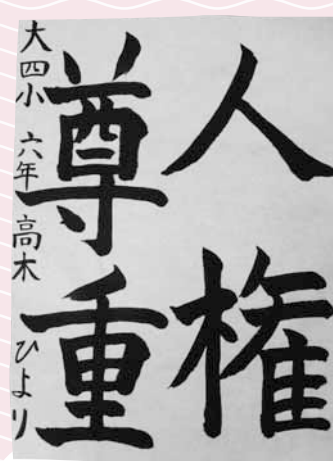 人権
尊重
大四小 六年 高木 ひより